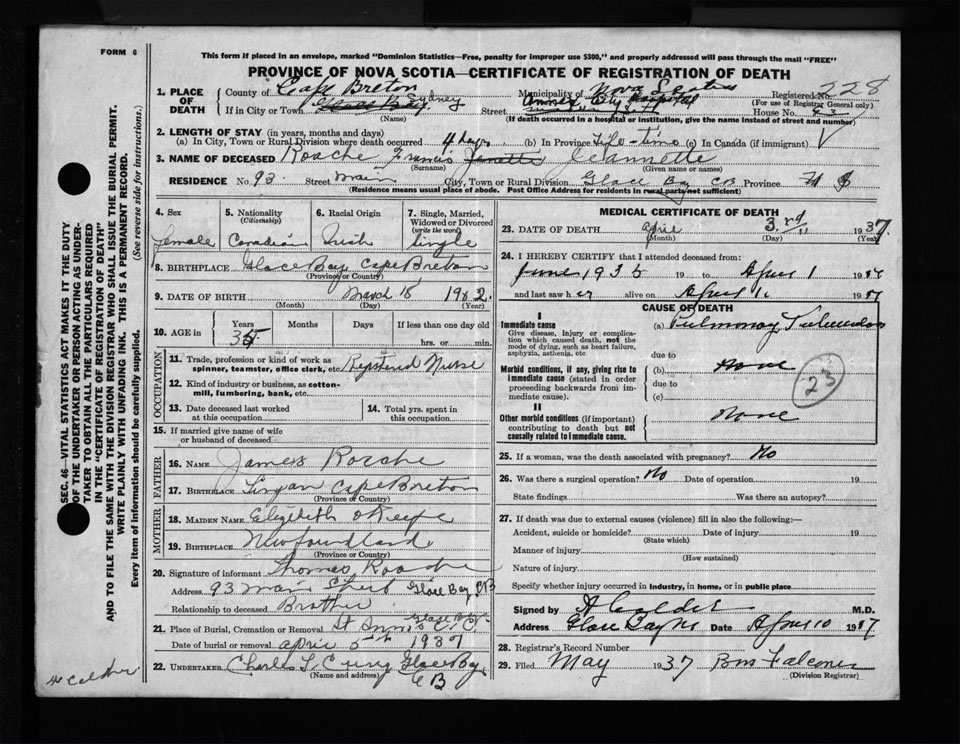 FORM 6
This form if placed in an envelope, marked "Dominion Statistics—Free, penalty for improper use $300," and properly addressed will pass through the mail "FREE"
PROVINCE OF NOVA SCOTIA—CERTIFICATE OF REGISTRATION OF DEATH
1. PLACE OF DEATH County of Cape Breton Municipality of Nova Scotia Registered No. 828
(For use of Registrar General only)
If in City or Town Glace Bay Sydney Street City Hospital House No.
(Name) (If death occurred in a hospital or institution, give the name instead of street and number)
2. LENGTH OF STAY (in years, months and days)
(a) In City, Town or Rural Division where death occurred 4 days (b) In Province Life-time (c) In Canada (if immigrant)
3. NAME OF DECEASED Roache Francis Jeannette
(Surname) (Given name or names)
RESIDENCE No. 93 Street Main City, Town or Rural Division Glace Bay CB Province N S
(Residence means usual place of abode. Post Office Address for residents in rural parts not sufficient)
4. Sex female
5. Nationality (Citizenship) Canadian
6. Racial Origin Irish
7. Single, Married, Widowed or Divorced (write the word) Single
8. BIRTHPLACE Glace Bay Cape Breton
(Province or Country)
9. DATE OF BIRTH March 18 1902
(Month) (Day) (Year)
10. AGE in Years 35 Months Days If less than one day old hrs. or min.
OCCUPATION
11. Trade, profession or kind of work as spinner, teamster, office clerk, etc. Registered Nurse
12. Kind of industry or business, as cotton-mill, lumbering, bank, etc.
13. Date deceased last worked at this occupation
14. Total yrs. spent in this occupation
15. If married give name of wife or husband of deceased
FATHER
16. NAME James Roache
17. BIRTHPLACE Lingan Cape Breton
(Province or Country)
MOTHER
18. MAIDEN NAME Elizabeth O'Keefe
19. BIRTHPLACE Newfoundland
(Province or Country)
20. Signature of informant Thomas Roache
Address 93 Main Street Glace Bay, CB
Relationship to deceased Brother
21. Place of Burial, Cremation or Removal St Ann's Glace Bay C.B.
Date of burial or removal April 5th 1937
22. UNDERTAKER Charles L Curry Glace Bay
(Name and address) C B
MEDICAL CERTIFICATE OF DEATH
23. DATE OF DEATH April 3rd 1937
(Month) (Day) (Year)
24. I HEREBY CERTIFY that I attended deceased from:
June 1935 19 to April 1 1937
and last saw her alive on April 1. 1937
CAUSE OF DEATH
I
Immediate cause (a) Pulmonary Tuberculosis
Give disease, injury or complication which caused death, not the mode of dying, such as heart failure, asphyxia, asthenia, etc
due to
Morbid conditions, if any, giving rise to immediate cause (stated in order proceeding backwards from immediate cause). (b) None
due to
(c)
23
II
Other morbid conditions (if important) contributing to death but not causally related to immediate cause. None
25. If a woman, was the death associated with pregnancy? No
26. Was there a surgical operation? No Date of operation 19
State findings Was there an autopsy?
27. If death was due to external causes (violence) fill in also the following:—
Accident, suicide or homicide? Date of injury 19
(State which)
Manner of injury
(How sustained)
Nature of injury
Specify whether injury occurred in industry, in home, or in public place
Signed by A Calder M.D.
Address Glace Bay NS Date April 10 1937
28. Registrar's Record Number
29. Filed May 1937 Falconer
(Division Registrar)
SEC. 46—VITAL STATISTICS ACT MAKES IT THE DUTY
OF THE UNDERTAKER OR PERSON ACTING AS UNDERTAKER
TO OBTAIN ALL THE PARTICULARS REQUIRED
IN THE "CERTIFICATE OF REGISTRATION OF DEATH"
AND TO FILE THE SAME WITH THE DIVISION REGISTRAR WHO SHALL ISSUE THE BURIAL PERMIT.
WRITE PLAINLY WITH UNFADING INK. THIS IS A PERMANENT RECORD.
Every item of information should be carefully supplied. (See reverse side for instructions.)
Calder